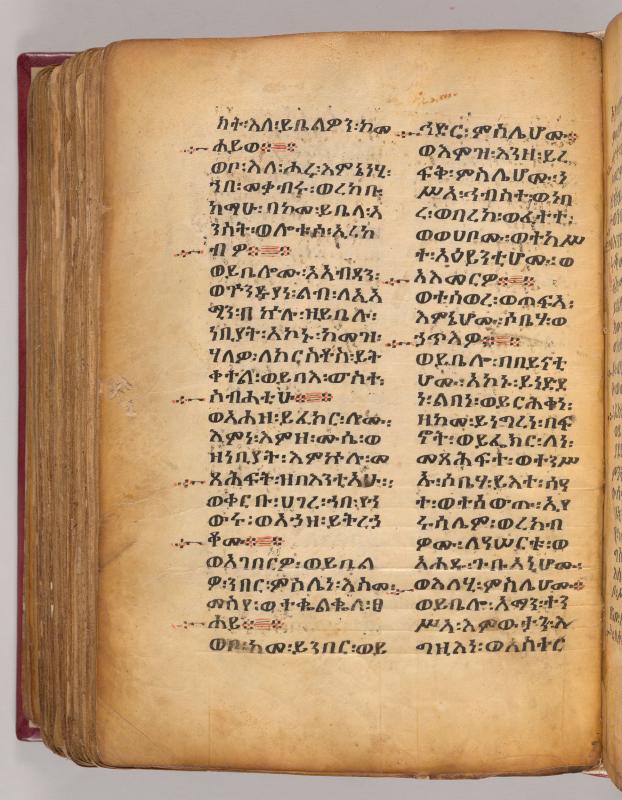 ክት፡እለ፡ይቤልዎን፡ከመ
ሐይወ።
ወቦ፡እለ፡ሐሩ፡እምኔነሂ፡
ኀበ፡መቃብሩ፡ወረከቡ፡
ከማሁ፡በከመ፡ይቤላ፡አ
ንስት፡ወሎቱሰ፡ኢረከ
ብዎ።
ወይቤሎሙ፡አአብዳን፡
ወጕንዱያነ፡ልብ፡ለአአ
ሚን፡በኵሉ፡ዘይቤሉ፡
ነቢያት፡አኮኑ፡ከመዝ፡
ሃለዎ፡ለክርስቶስ፡ይት
ቀተል፡ወይባእ፡ውስተ፡
ስብሐቲሁ።
ወአሐዘ፡ይፈክር፡ሎሙ፡
እምነ፡እምዘ፡ሙሴ፡ወ
ዘነቢያት፡እምኵሉ፡መ
ጸሕፍት፡ዘበእንቲአሁ፡
ወቀርቡ፡ሀገረ፡ኀበ፡የሐ
ውሩ፡ወእኀዘ፡ይትረኀ
ቆሙ።
ወአገበርዎ፡ወይቤል
ዎ፡ንበር፡ምስሌነ፡እስመ፡
መስየ፡ወተቈልቈለ፡ፀ
ሐይ።
ወቦአ፡ከመ፡ይንበር፡ወይ
ኅድር፡ምስሌሆሙ።
ወእምዝ፡እንዘ፡ይረ
ፍቅ፡ምስሌሆሙ፡ነ
ሥአ፡ኅብስተ፡ወባ
ረ፡ወባረከ፡ወፈተተ፡
ወወሀቦሙ፡ወተከሥ
ተ፡አዕይንቲሆሙ፡ወ
አእመርዎ።
ወተሰወረ፡ወጠፍአ፡
እምኔሆሙ፡ሶቤሃ፡ወ
ኃጥእዎ።
ወይቤሎ፡በበይናቲ
ሆሙ፡አኮኑ፡ይነድደ
ነ፡ልበነ፡ወይርሕቀነ፡
ዘከመ፡ይነግረነ፡በፍ
ኖት፡ወይፌክር፡ለነ፡
መጻሕፍተ፡ወተንሥ
ኡ፡ሶቤሃ፡ይእተ፡ሰዓ
ተ፡ወተሰውጡ፡ኢየ
ሩሳሌም፡ወረከብ
ዎሙ፡ለዓሠርቱ፡ወ
አሐዱ፡ጉቡኣኒሆሙ፡
ወእለሂ፡ምስሌሆሙ።
ወይቤሎ፡አማን፡ተን
ሥአ፡እምውታን፡እ
ግዚእነ፡ወአስተር